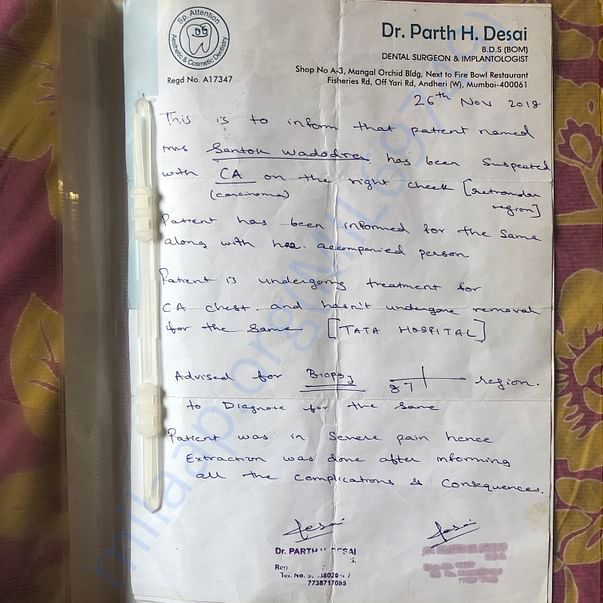 Sp. Attention
DG
Aesthetic & Cosmetic Dentistry
Regd No. A17347
Dr. Parth H. Desai
B.D.S (BOM)
DENTAL SURGEON & IMPLANTOLOGIST
Shop No A-3, Mangal Orchid Bldg, Next to Fire Bowl Restaurant
Fisheries Rd, Off Yari Rd, Andheri (W), Mumbai-400061
26th Nov 2018
This is to inform that patient named
Mrs Santok Wadodra has been suspected
with CA on the right cheek [retromolar
(carcinoma) region]
Patient has been informed for the same
along with her accompanied person
Patient is undergoing treatment for
CA chest and hasn't undergone removal
for the same [TATA HOSPITAL]
Advised for Biopsy 87 region.
to Diagnose for the same
Patient was in severe pain hence
Extraction was done after informing
all the complications & consequences.
Desai Desai
Dr. PARTH DESAI
7738717085
milaap.org